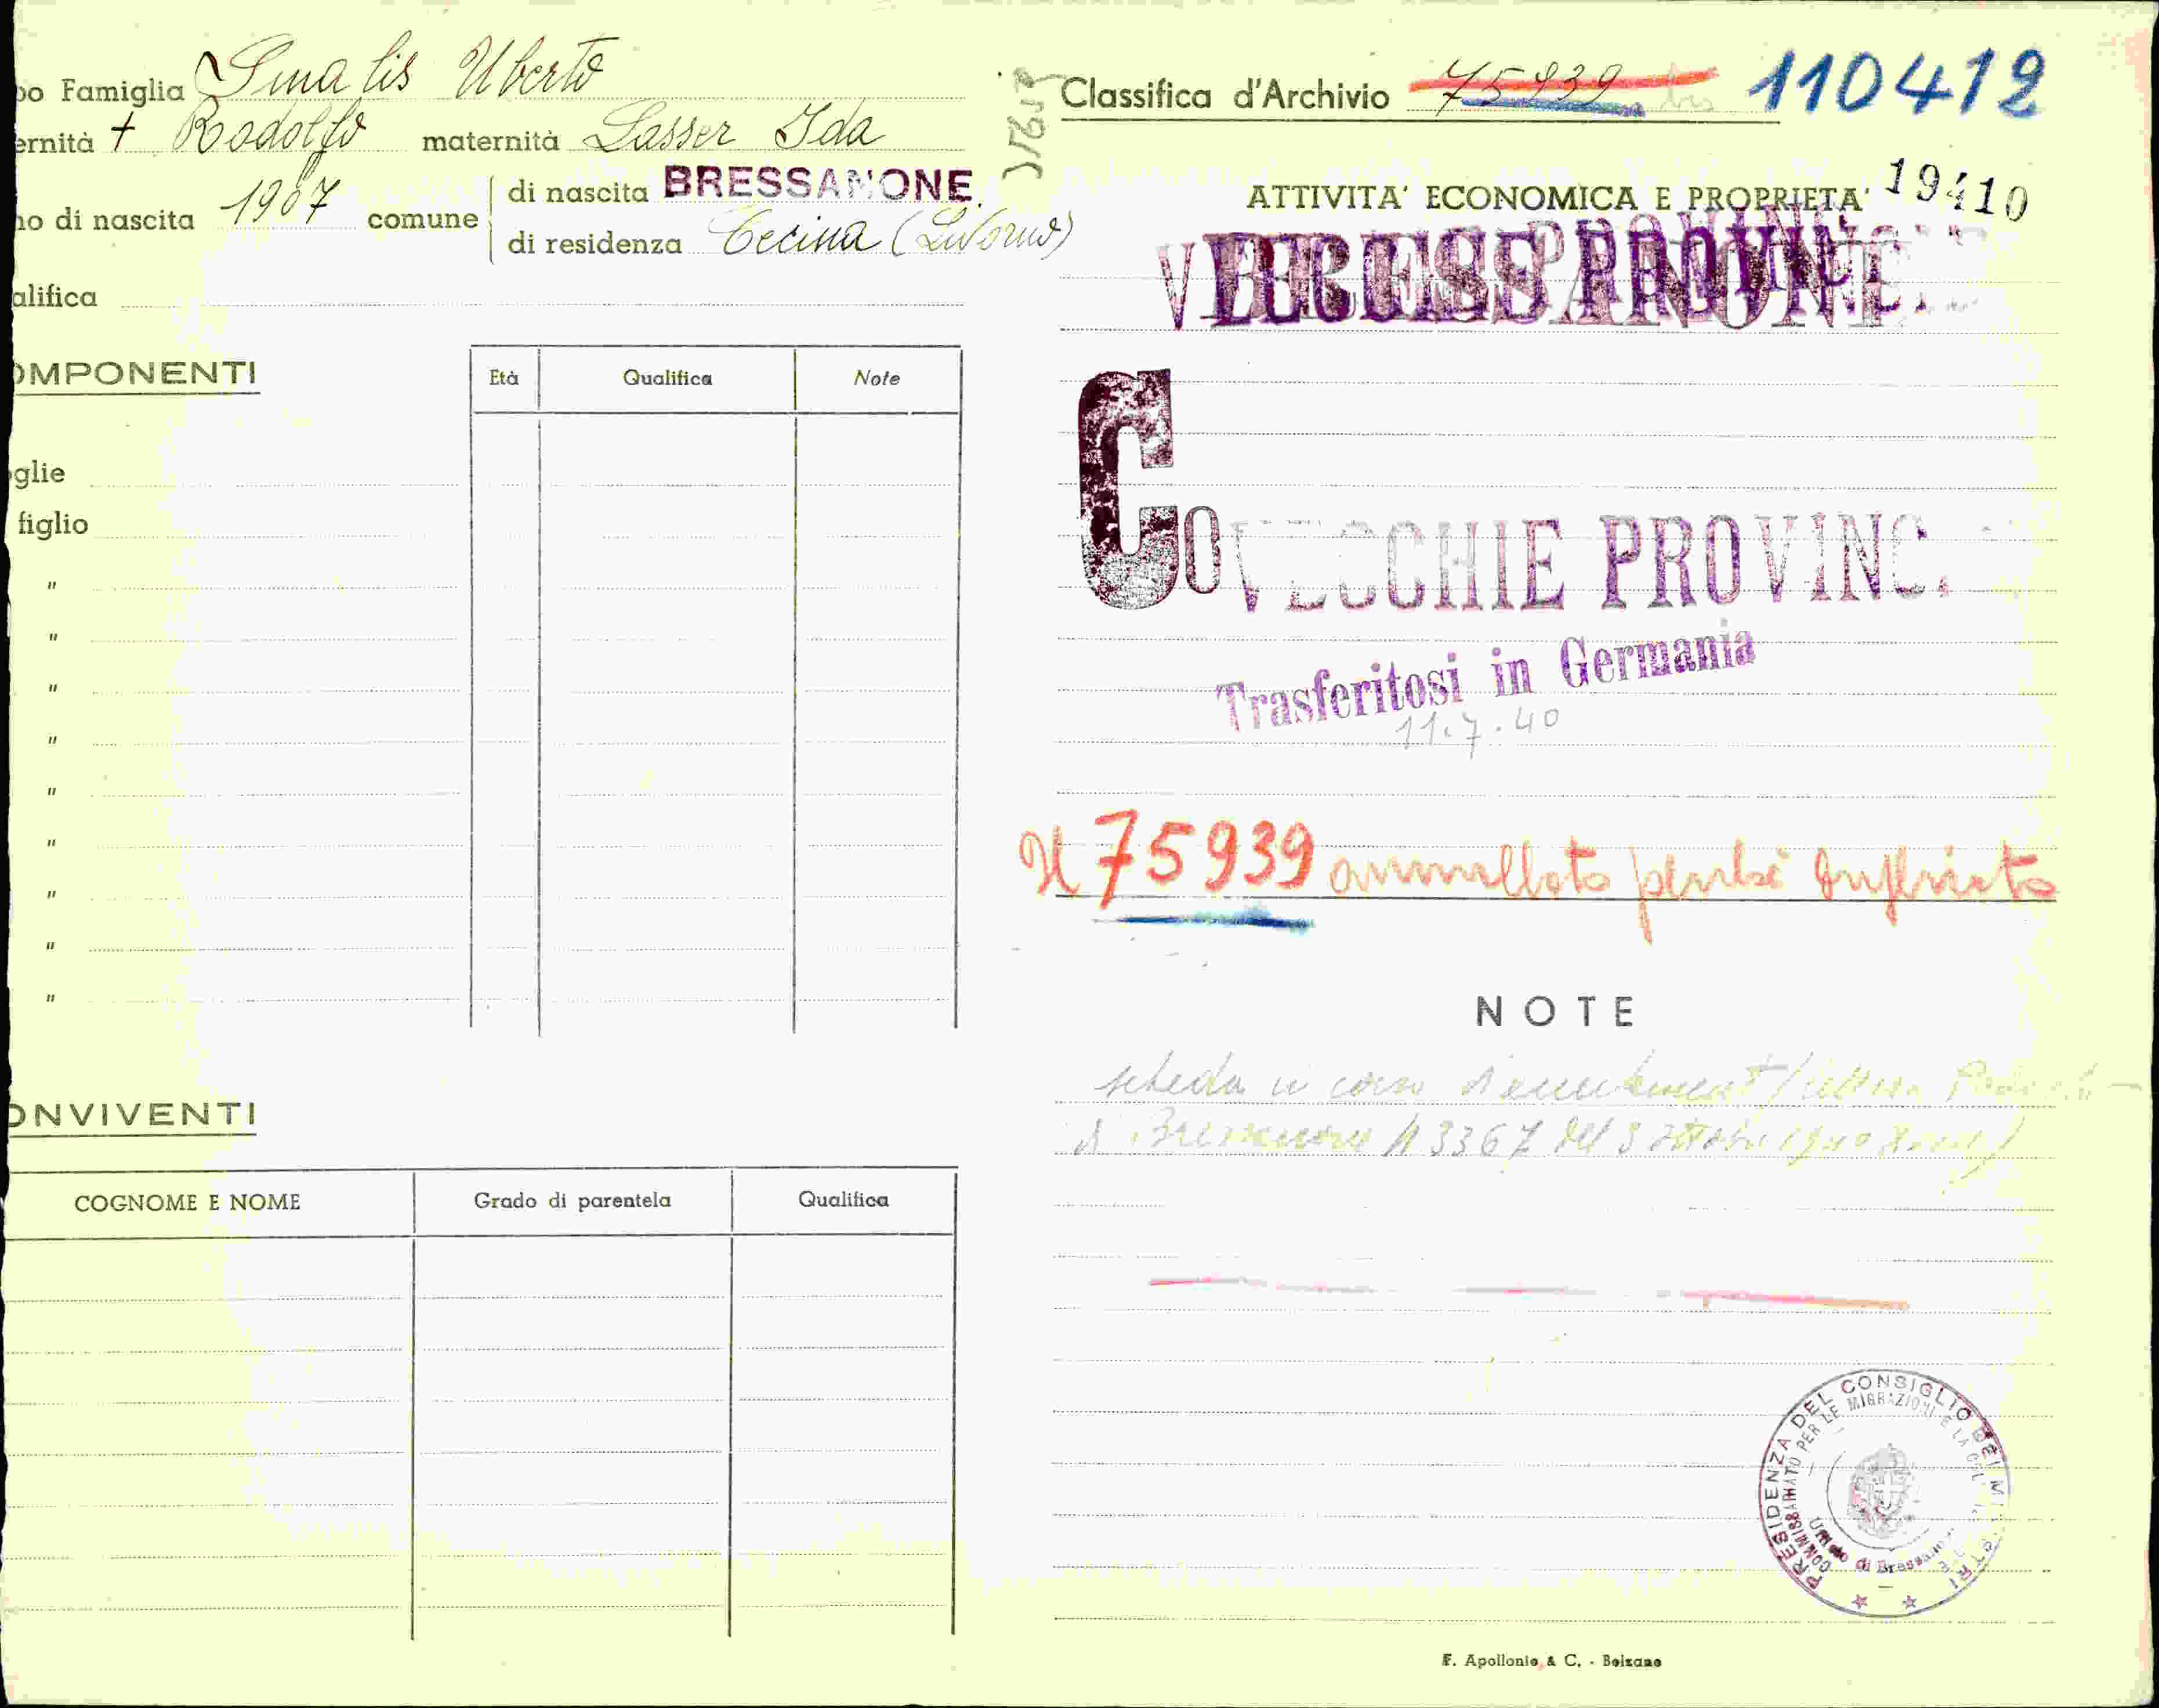 po Famiglia Smalis Uberto
ernità + Rodolfo maternità Lasser Ida
no di nascita 1907 comune di nascita BRESSANONE
di residenza Cecina (Livorno)
alifica
OMPONENTI
Età Qualifica Note
oglie
figlio
"
"
"
"
"
"
"
"
"
ONVIVENTI
COGNOME E NOME Grado di parentela Qualifica
Classifica d'Archivio 75939 bis 110412
ATTIVITA' ECONOMICA E PROPRIETA' 19410
VECCHIE PROVINC.
BRESSANONE
Co VECCHIE PROVINC.
Trasferitosi in Germania
11.7.40
Il 75939 annullato perché
NOTE
scheda in corso
di Bressanone N 3367 del 3 ottobre 1940
PRESIDENZA DEL CONSIGLIO DEI MINISTRI
COMMISSARIATO PER LE MIGRAZIONI E LA COL.
Ufficio di Bressanone
F. Apollonio & C. - Bolzano